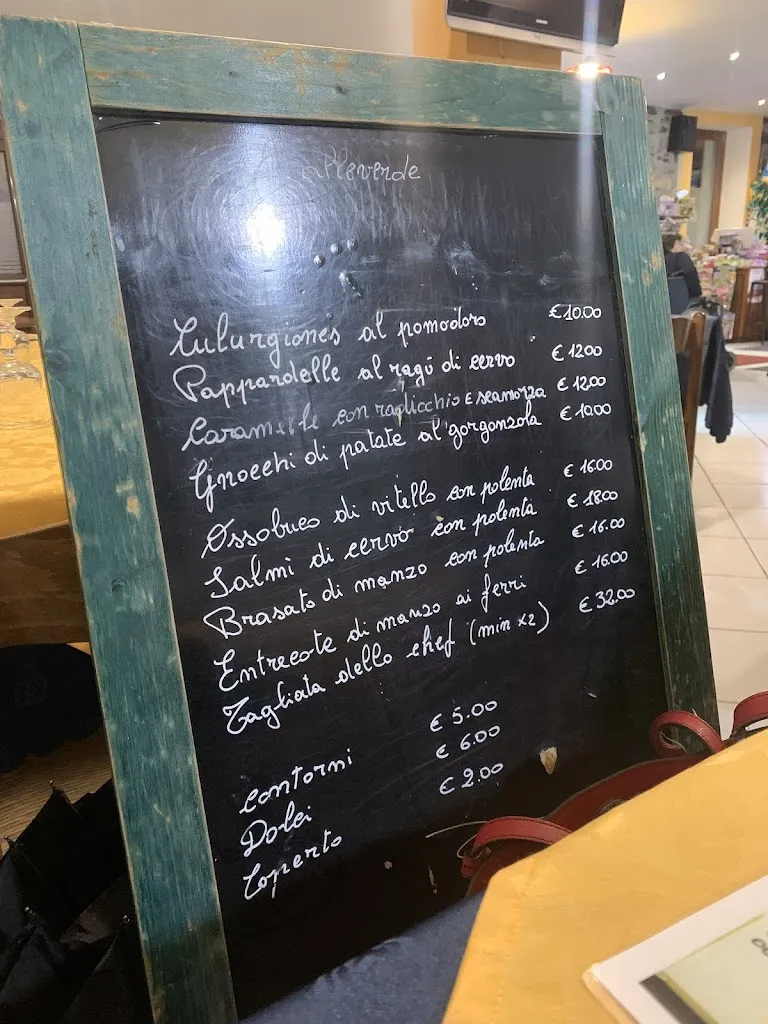 alleverde
Culurgiones al pomodoro € 10.00
Pappardelle al ragú di cervo € 12.00
Caramelle con radicchio E scamorza € 12.00
Gnocchi di patate al gorgonzola € 10.00
Ossobuco di vitello con polenta € 16.00
Salmì di cervo con polenta € 18.00
Brasato di manzo con polenta € 16.00
Entrecote di manzo ai ferri € 16.00
Tagliata dello chef (min x2) € 32.00
contorni € 5.00
Dolci € 6.00
Coperto € 2.00